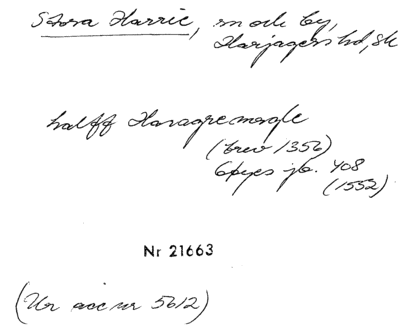 Stora Harrie, sn och by,
Harjagers hd, Sk
halff Haragremogle
(brev 1356)
Gyes jb. 408
(1552)
Nr 21663
(Ur acc nr 5612)